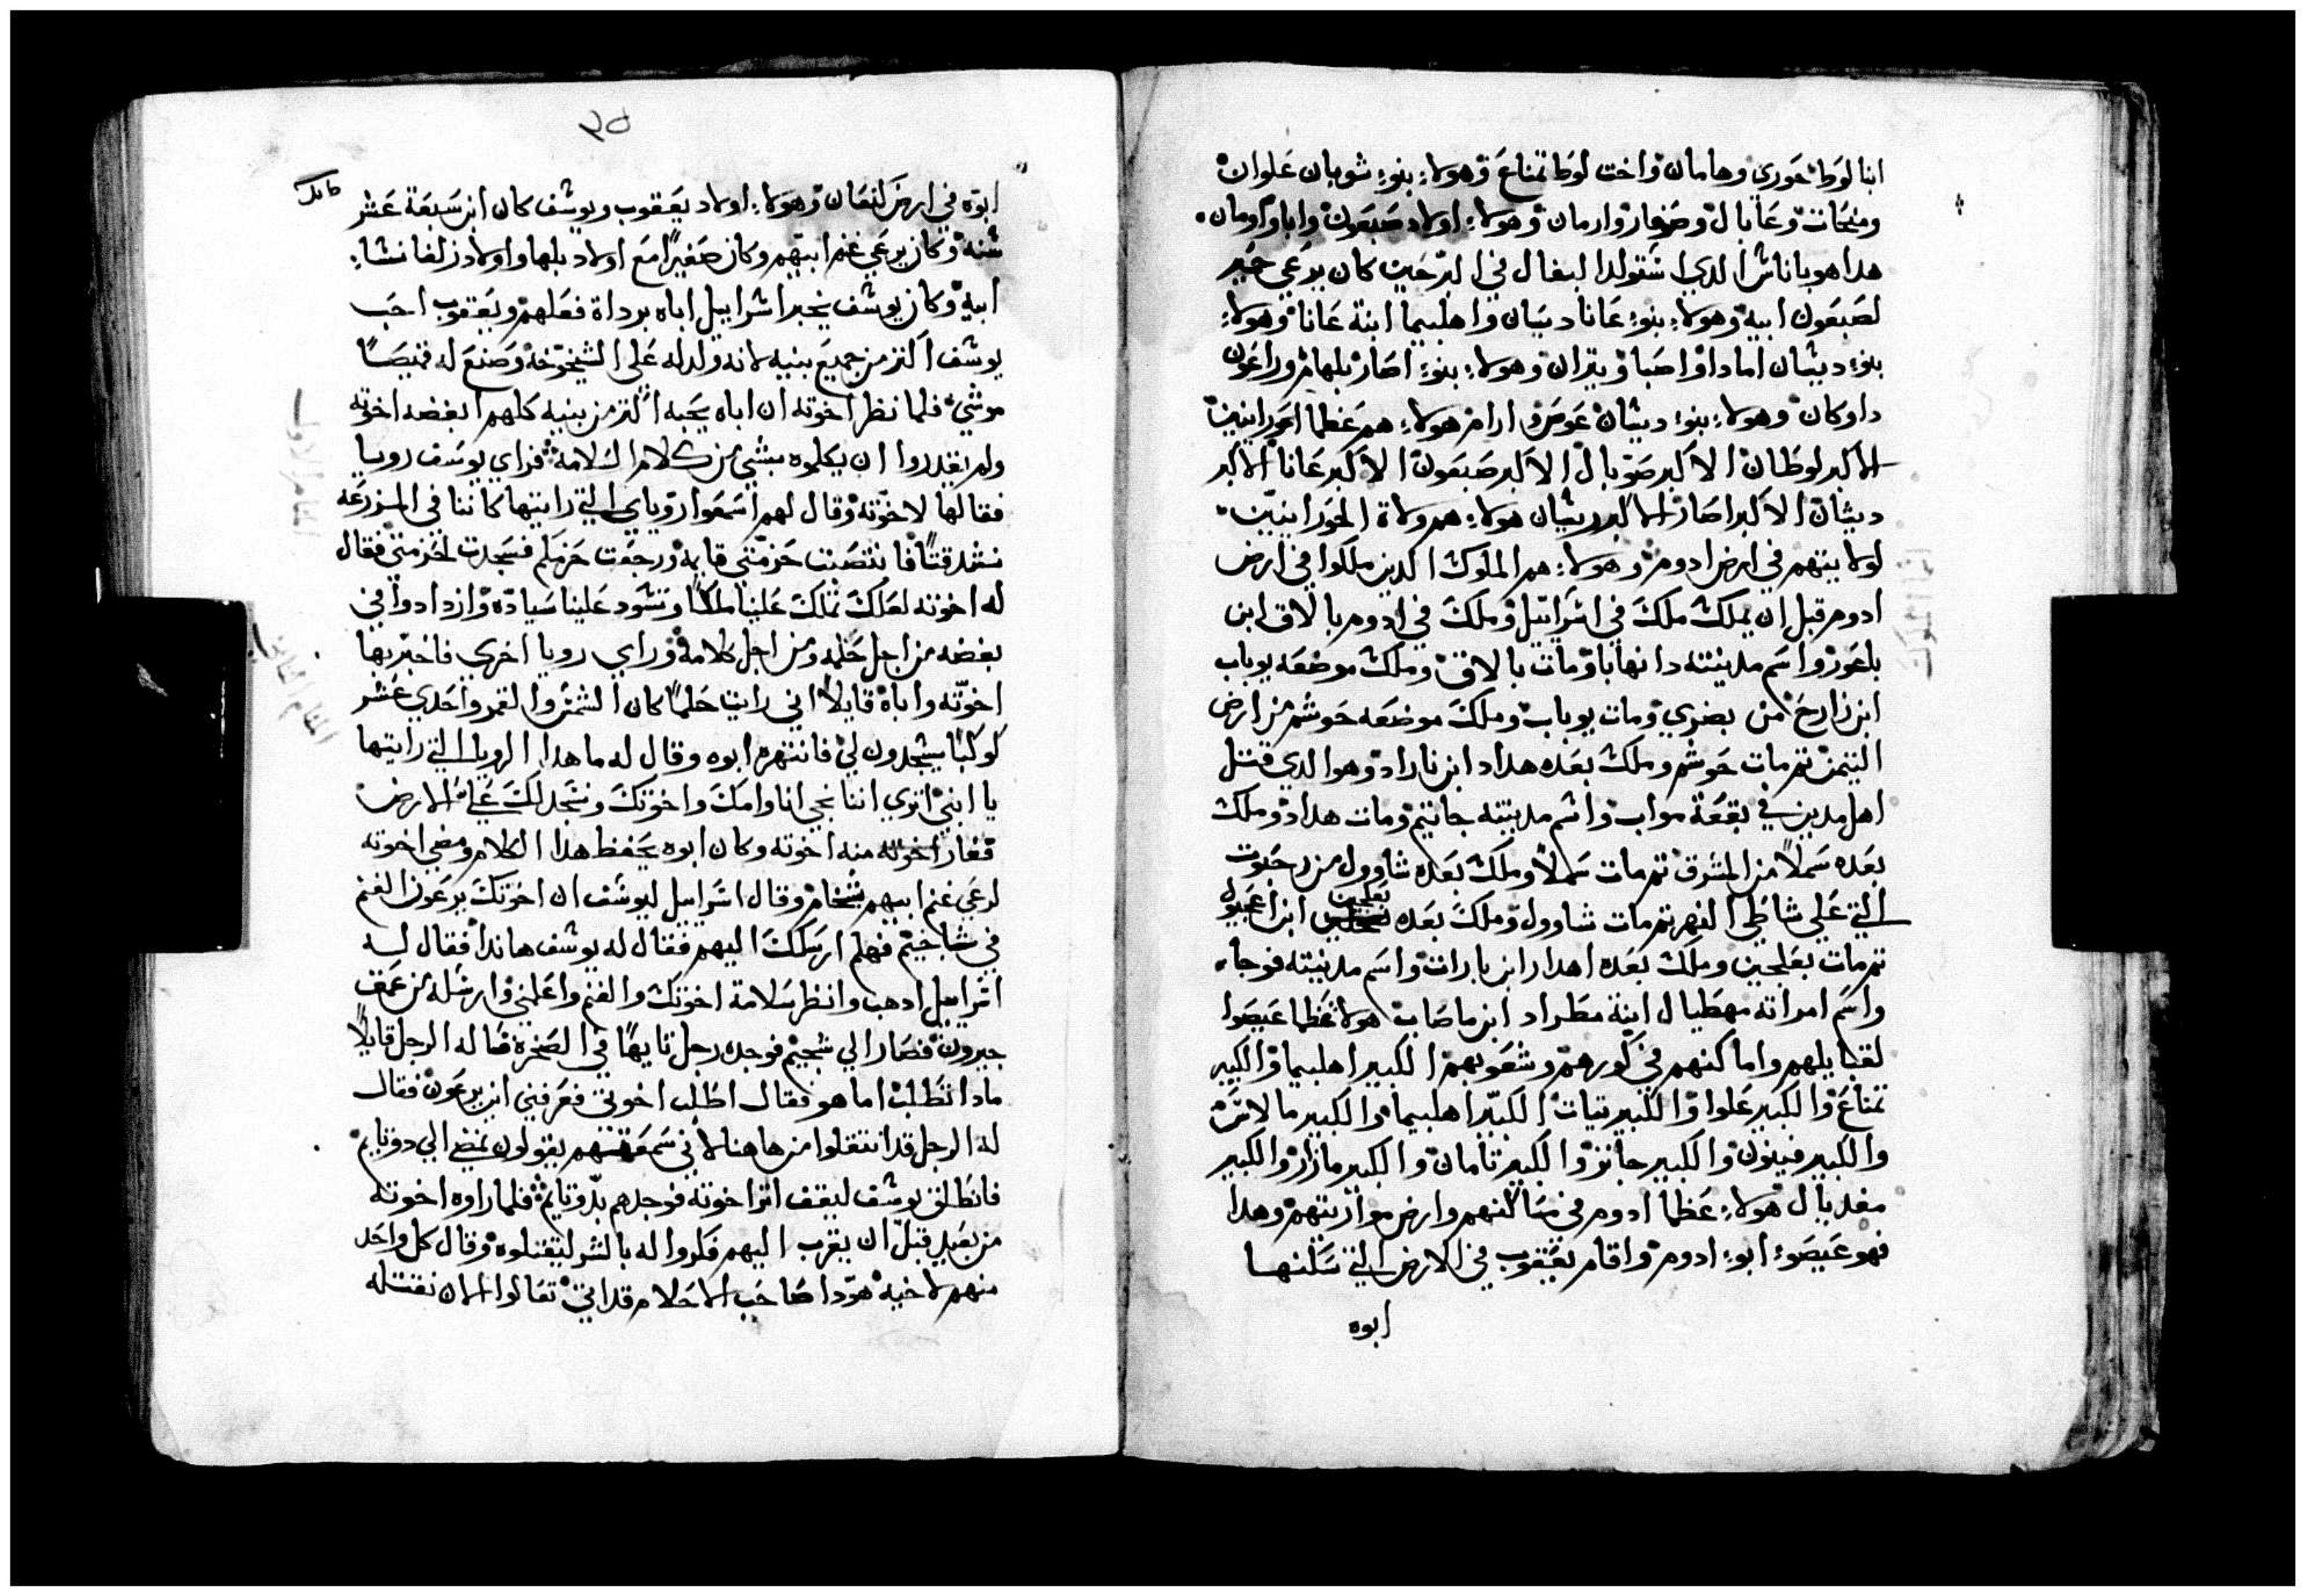 ابنا لوط حوري وهامان واخت لوط تمناع وهولاء بنوء شوبان علوان
ومنحات وعابال وصفار وارمان وهولاء اولاد صبعون وابا واومان
هدا هو باناش الدي اشتولد البغال في البر حين كان يرعي حمير
لصبعون ابيه وهولاء بنوء عانا ديسان واهليبما ابنة عانا وهولاء
بنوء ديشان امادا واصبا ويتران وهولاء بنوء اصار بلهام وراعون
داوكان وهولاء بنوء ديشان عوص وارام هولاء هم عظما الحورانيين
الاكبر لوطان الاكبر صوبال الاكبر صبعون الاكبر عانا الاكبر
ديشان الاكبر اصار الاكبر ريشان هولاء هم ولاة الحورانيين
لولايتهم في ارض ادوم وهولاء هم الملوك الدين ملكوا في ارض
ادوم قبل ان يملك ملك في اشراييل وملك في ادوم بالاق ابن
باعور واسم مدينته دانهابا ومات بالاق وملك موضعه يوباب
ابن زارح من بصري ومات يوباب وملك موضعه حوشم من ارض
التيمن تم مات حوشم وملك بعده هداد ابن ناراد وهو الدي قتل
اهل مدين في بقعة مواب واسم مدينته جاتيم ومات هداد وملك
بعده سملا من المشرق تم مات سملا وملك بعده شاوول من رحبوت
التي علي شاطي النهر تم مات شاوول وملك بعده بعلحين ابن اعبول
تم مات بعلحين وملك بعده اهدار ابن بارات واسم مدينته فوجاء
واسم امراته مهطيال ابنة مطراد ابن ماصاب هولا عظما عيصوا
لقبايلهم واماكنهم في كورهم وشعوبهم الكبير اهليبما والكبير
تمناع والكبير علوا والكبير تيات الكبير اهليبما والكبير مالاش
والكبير فينون والكبير جانز والكبير تامان والكبير مازار والكبير
مغديال هولاء عظما ادوم في مساكنهم وارض مواريتهم وهدا
فهو عيصوء ابوء ادوم واقام يعقوب في الارض التي سكنها
ابوه
٣٥
ابوه في ارض كنعان وهولاء اولاد يعقوب ويوشف كان ابن سبعة عشر
شنه وكان يرعي غنم ابيهم وكان صغيرا مع اولاد بلها واولاد زلفا نشاء
ابيه وكان يوشف يخبر اشراييل اباه برداة فعلهم ويعقوب احب
يوشف اكتر من جميع بنيه لانه ولد له علي الشيخوخه وصنع له قميصا
موشي فلما نظر اخوته ان اباه يحبه اكتر من بنيه كلهم ابغضه اخوته
ولم يقدروا ان يكلموه بشي من كلام السلامة فراي يوسف رويا
فقالها لاخوته وقال لهم اسمعوا روياي التي رايتها كاننا في المزرعه
نشد قتا فانتصبت حزمتي قايمه ورجعت حزمكم فسجدت لحزمتي فقال
له اخوته لعلك تملك علينا ملكا وتشود علينا سيادة وازدادوا في
بغضه من اجل حلمه ومن اجل كلامه وراي رويا اخري فاخبر بها
اخوته واباه قايلا اني رايت حلما كان الشمش والقمر واحدي عشر
كوكبا يسجدون لي فانتهره ابوه وقال له ما هدا الرويا التي رايتها
يا ابني اتري اننا نجي انا وامك واخوتك ونسجد لك علي الارض
فغار اخوته منه اخوته وكان ابوه يحفظ هدا الكلام ومضي اخوته
لرعي غنم ابيهم بشخام وقال اشراييل ليوشف ان اخوتك يرعون الغنم
في شاخيم فهلم ارسلك اليهم فقال له يوشف هاندا فقال له
اشراييل ادهب وانظر سلامة اخوتك والغنم واعلمني وارسله من عمق
حبرون فصار الي شخيم فوجده رجل تايها في الصخره فساله الرجل قايلا
مادا تطلب اما هو فقال اطلب اخوتي فعرفني اين يرعون فقال
له الرجل قد انتقلوا من هاهنا لاني سمعتهم يقولون نمضي الي دوتايم
فانطلق يوشف ليقف اتر اخوته فوجدهم بدوتايم فلما راوه اخوته
من بعيد قبل ان يقرب اليهم فكروا له بالشر ليقتلوه وقال كل واحد
منهم لاخيه هودا صاحب الاحلام قد اتي تعالوا الان نقتله